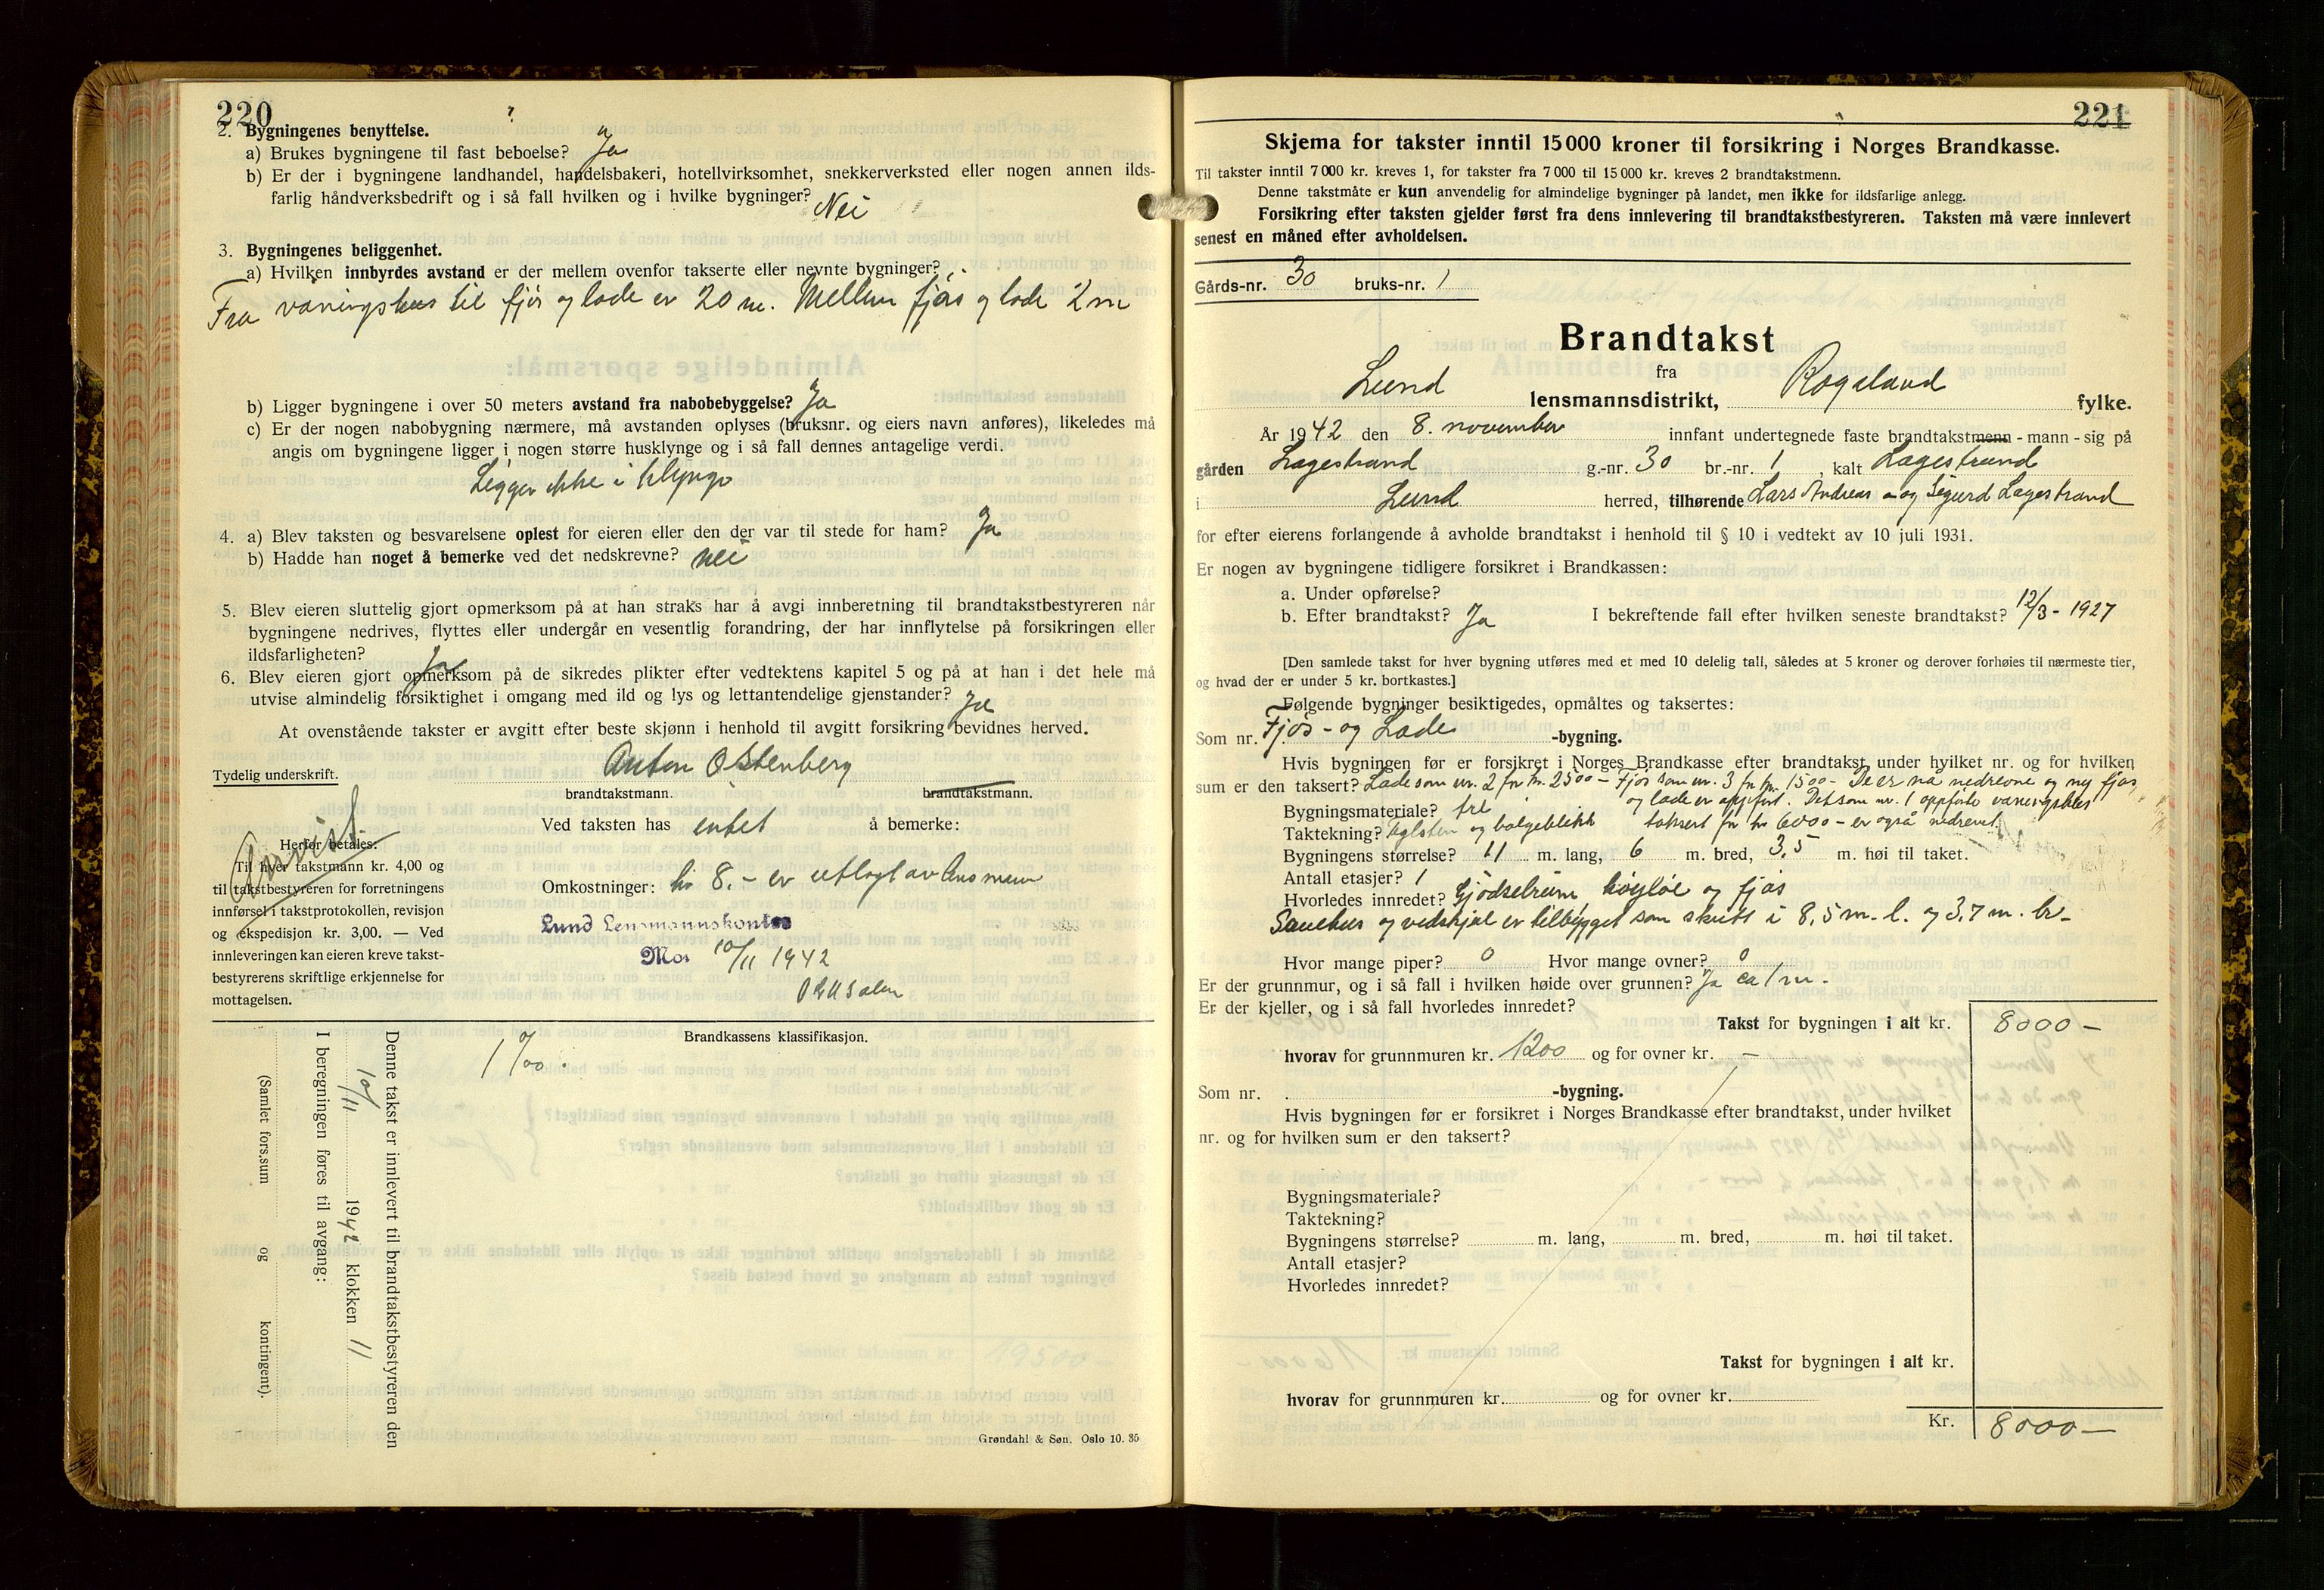 220
2. Bygningenes benyttelse.
a) Brukes bygningene til fast beboelse? Ja
b) Er der i bygningene landhandel, handelsbakeri, hotellvirksomhet, snekkerverksted eller nogen annen ilds-
farlig håndverksbedrift og i så fall hvilken og i hvilke bygninger? Nei
3. Bygningenes beliggenhet.
a) Hvilken innbyrdes avstand er der mellem ovenfor takserte eller nevnte bygninger?
Fra våningshus til fjøs og lade er 20 m. Mellum fjøs og lade 2 m
b) Ligger bygningene i over 50 meters avstand fra nabobebyggelse? Ja
c) Er der nogen nabobygning nærmere, må avstanden oplyses (bruksnr. og eiers navn anføres), likeledes må
angis om bygningene ligger i nogen større husklynge og i så fall dennes antagelige verdi.
Ligger ikke i klynge
4. a) Blev taksten og besvarelsene oplest for eieren eller den der var til stede for ham? Ja
b) Hadde han noget å bemerke ved det nedskrevne? nei
5. Blev eieren sluttelig gjort opmerksom på at han straks har å avgi innberetning til brandtakstbestyreren når
bygningene nedrives, flyttes eller undergår en vesentlig forandring, der har innflytelse på forsikringen eller
ildsfarligheten? Ja
6. Blev eieren gjort opmerksom på de sikredes plikter efter vedtektens kapitel 5 og på at han i det hele må
utvise almindelig forsiktighet i omgang med ild og lys og lettantendelige gjenstander? Ja
At ovenstående takster er avgitt efter beste skjønn i henhold til avgitt forsikring bevidnes herved.
Tydelig underskrift. Anton Ostenberg
brandtakstmann. brandtakstmann.
Ved taksten has intet å bemerke:
Herfor betales:
Til hver takstmann kr. 4,00 og
til takstbestyreren for forretningens
innførsel i takstprotokollen, revisjon
og ekspedisjon kr. 3,00. — Ved
innleveringen kan eieren kreve takst-
bestyrerens skriftlige erkjennelse for
mottagelsen.
Omkostninger: kr 8.- er utlagt av
Lund Lensmannskontor
Moi 10/11 1942
Brandkassens klassifikasjon.
1 ‰.
Denne takst er innlevert til brandtakstbestyreren den
10/11 1942 klokken 11
I beregningen føres til avgang:
(Samlet fors.sum og kontingent).
Grøndahl & Søn. Oslo 10. 35
221
Skjema for takster inntil 15 000 kroner til forsikring i Norges Brandkasse.
Til takster inntil 7 000 kr. kreves 1, for takster fra 7 000 til 15 000 kr. kreves 2 brandtakstmenn.
Denne takstmåte er kun anvendelig for almindelige bygninger på landet, men ikke for ildsfarlige anlegg.
Forsikring efter taksten gjelder først fra dens innlevering til brandtakstbestyreren. Taksten må være innlevert
senest en måned efter avholdelsen.
Gårds-nr. 30 bruks-nr. 1
Brandtakst
fra
Lund lensmannsdistrikt, Rogaland fylke.
År 1942 den 8. november innfant undertegnede faste brandtakstmenn - mann - sig på
gården Lagestrand g.-nr. 30 br.-nr. 1, kalt Lagestrand
i Lund herred, tilhørende Lars Andreas og Sigurd Lagestrand
for efter eierens forlangende å avholde brandtakst i henhold til § 10 i vedtekt av 10 juli 1931.
Er nogen av bygningene tidligere forsikret i Brandkassen:
a. Under opførelse?
b. Efter brandtakst? Ja I bekreftende fall efter hvilken seneste brandtakst? 12/3 - 1927
[Den samlede takst for hver bygning utføres med et med 10 delelig tall, således at 5 kroner og derover forhøies til nærmeste tier,
og hvad der er under 5 kr. bortkastes.]
Følgende bygninger besiktigedes, opmåltes og taksertes:
Som nr. Fjøs - og Lade -bygning.
Hvis bygningen før er forsikret i Norges Brandkasse efter brandtakst, under hvilket nr. og for hvilken
sum er den taksert? Lade som nr. 2 for kr. 2500 - Fjøs som nr. 3 for kr. 1500 - De er nå nedrevne og ny fjøs
og lade er oppført. Det som nr. 1 oppførte våningshus
Bygningsmateriale? tre
Taktekning? Teglsten og bølgeblikk taksert for kr 6000 - er også nedrevet.
Bygningens størrelse? 11 m. lang, 6 m. bred, 3,5 m. høi til taket.
Antall etasjer? 1
Hvorledes innredet? Gjødselrum, høyløe og fjøs
Sauehus og vedskjul er tilbygget som skutt i 8,5 m. l. og 3,7 m. br-
Hvor mange piper? 0 Hvor mange ovner? 0
Er der grunnmur, og i så fall i hvilken høide over grunnen? Ja ca 1 m.
Er der kjeller, og i så fall hvorledes innredet?
Takst for bygningen i alt kr. 8000 -
hvorav for grunnmuren kr. 1200 og for ovner kr. -
Som nr. -bygning.
Hvis bygningen før er forsikret i Norges Brandkasse efter brandtakst, under hvilket
nr. og for hvilken sum er den taksert?
Bygningsmateriale?
Taktekning?
Bygningens størrelse? m. lang, m. bred, m. høi til taket.
Antall etasjer?
Hvorledes innredet?
Takst for bygningen i alt kr.
hvorav for grunnmuren kr. og for ovner kr.
Kr. 8000 -